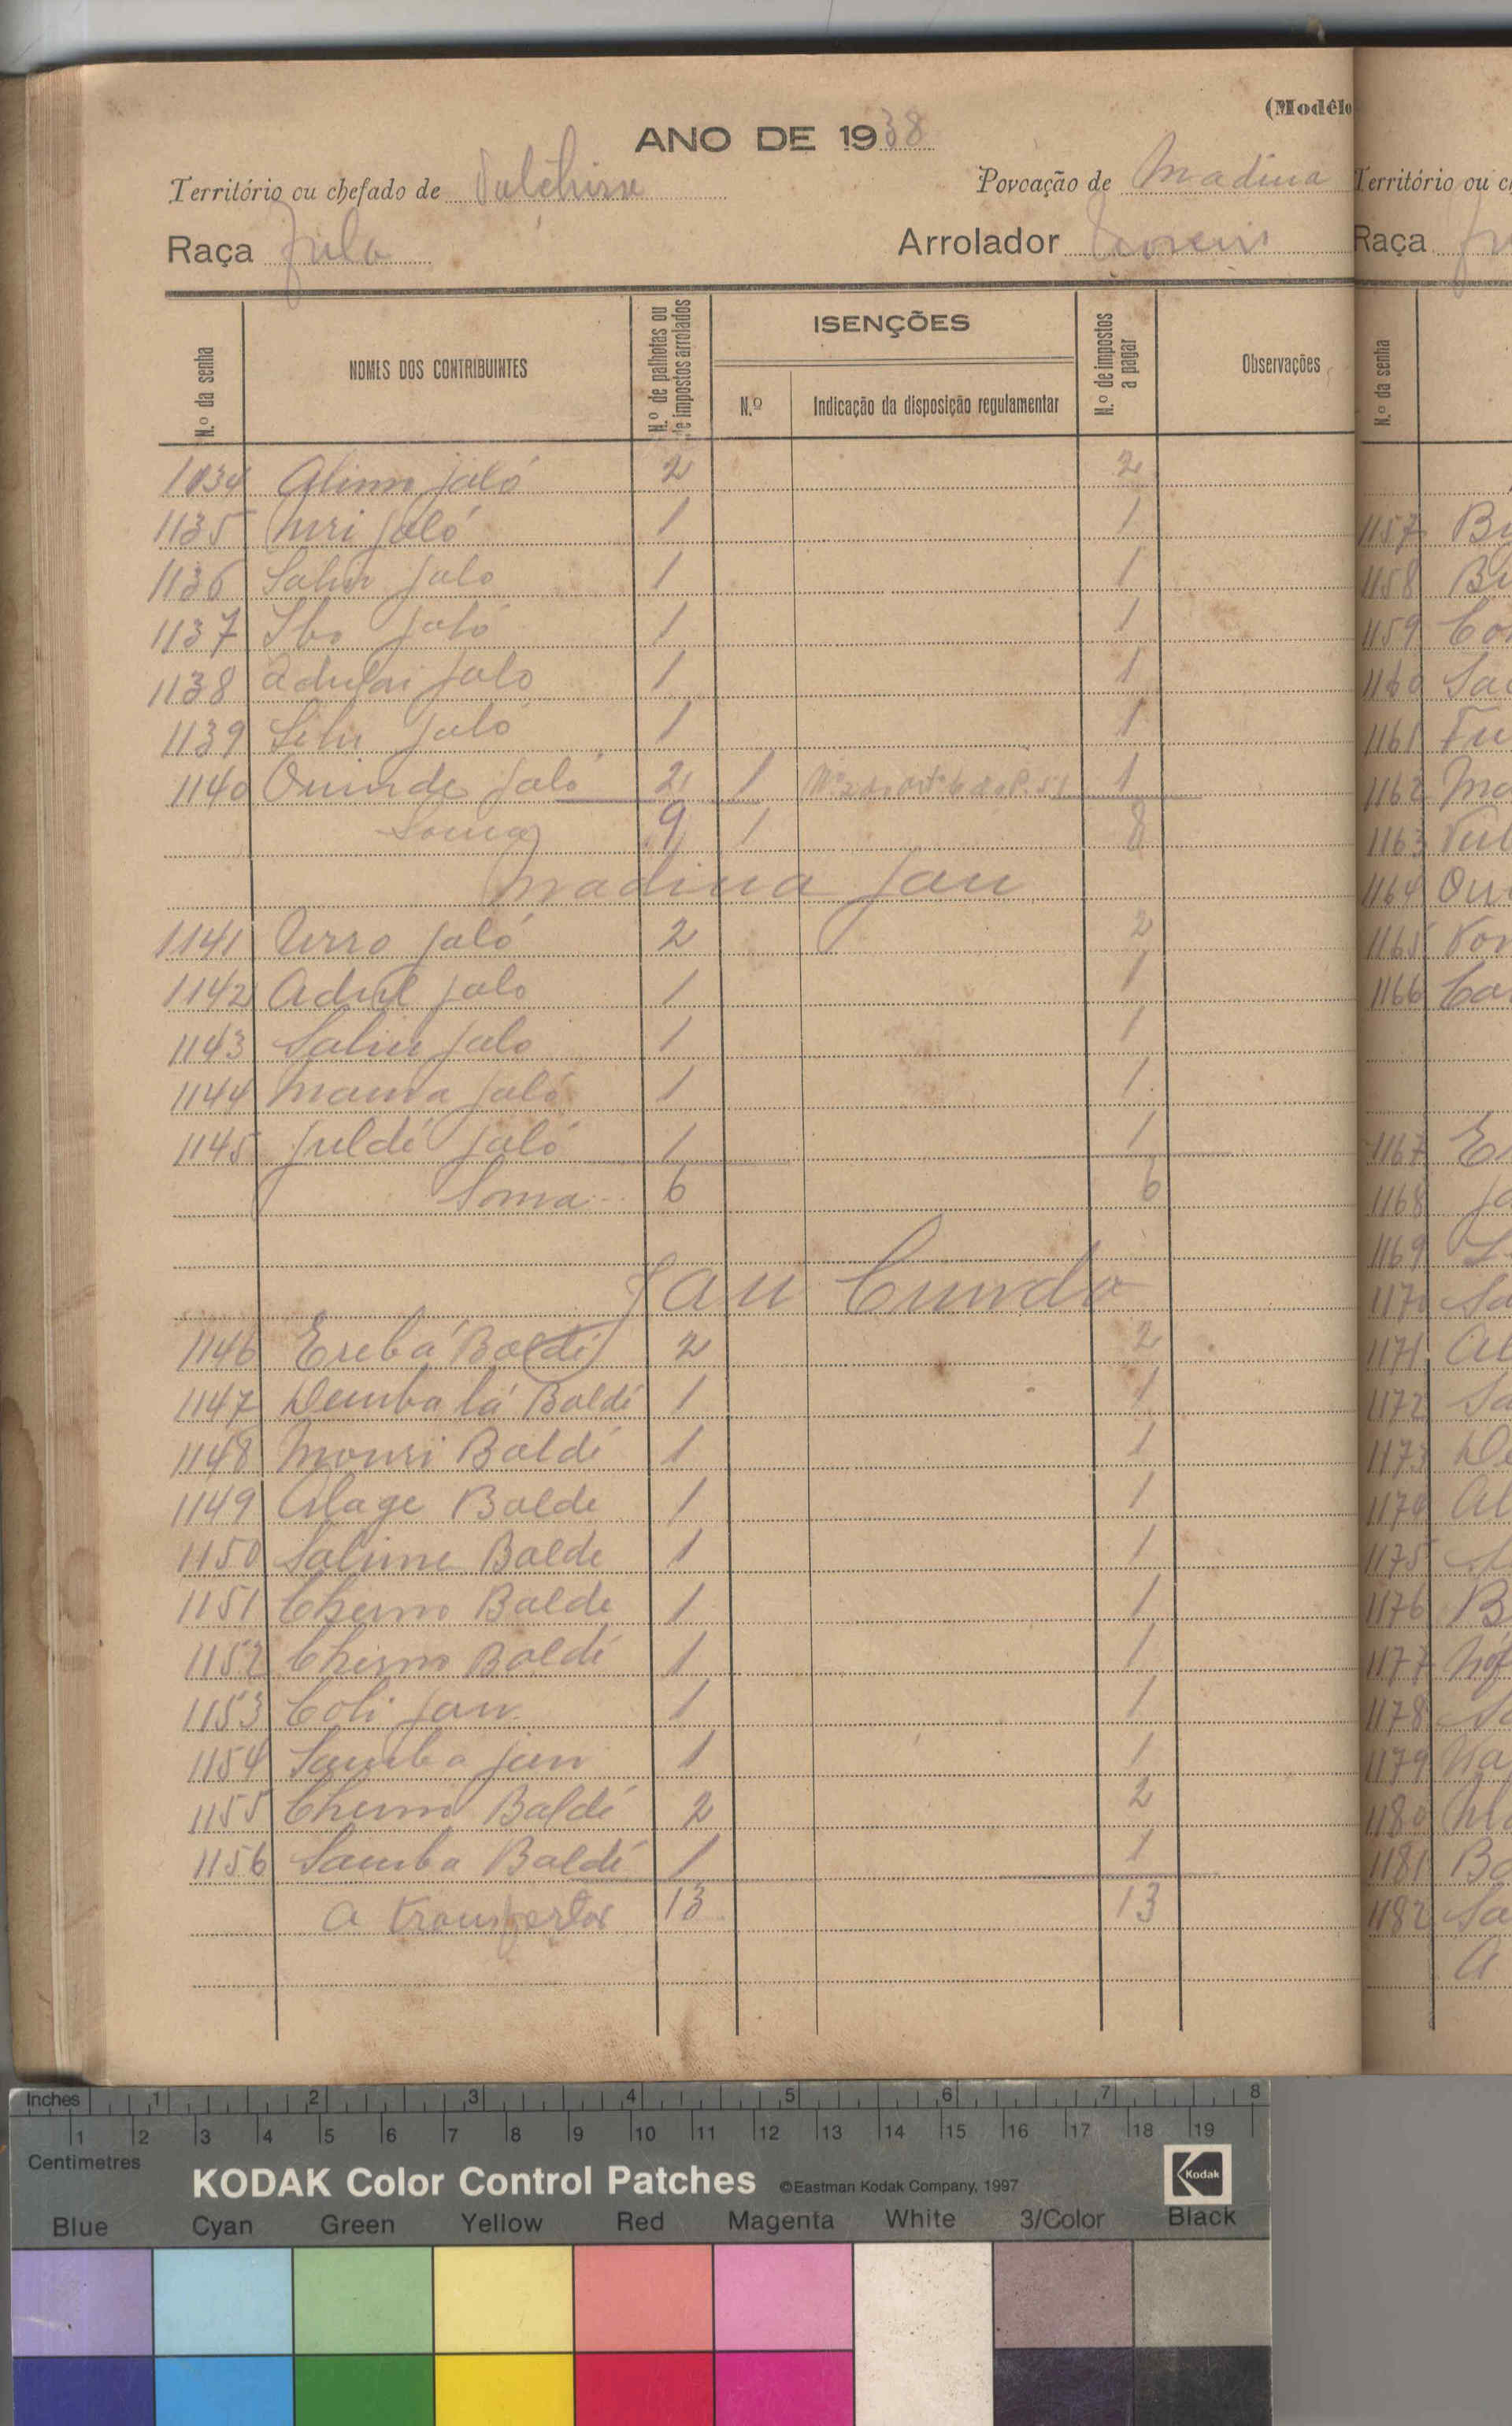 (Modêlo
ANO DE 1938
Território ou chefado de
Povoação de Madina
Raça Fula
Arrolador
N.º da senha
NOMES DOS CONTRIBUINTES
N.º de palhotas ou de impostos arrolados
ISENÇÕES
N.º
Indicação da disposição regulamentar
N.º de impostos a pagar
Observações
1034 Jaló 2 2
1135 Jaló 1 1
1136 Jalo 1 1
1137 Ibo Jaló 1 1
1138 Adulai Jalo 1 1
1139 Jaló 1 1
1140 Jaló 2 1 1
Soma 9 1 8
Madina Jau
1141 Urro Jaló 2 2
1142 Adul Jalo 1 1
1143 Saliu Jalo 1 1
1144 Jaló 1 1
1145 Juldé Jaló 1 1
Soma 6 6
Jau Cunda
1146 Erebá Baldé 2 2
1147 Demba lá Baldé 1 1
1148 Mouri Baldé 1 1
1149 Alage Balde 1 1
1150 Salime Balde 1 1
1151 Cherno Balde 1 1
1152 Cherno Baldé 1 1
1153 Coli Jau 1 1
1154 Samba Jau 1 1
1155 Cherno Baldé 2 2
1156 Samba Baldé 1 1
A transportar 13 13
Território ou c
Raça
N.º da senha
1157
1158
1159
1160
1161
1162
1163
1164
1165
1166
1167
1168
1169
1170
1171
1172
1173
1174
1175
1176
1177
1178
1179
1180
1181
1182
Inches 1 2 3 4 5 6 7 8
1 2 3 4 5 6 7 8 9 10 11 12 13 14 15 16 17 18 19
Centimetres
KODAK Color Control Patches ©Eastman Kodak Company, 1997 Kodak
Blue Cyan Green Yellow Red Magenta White 3/Color Black